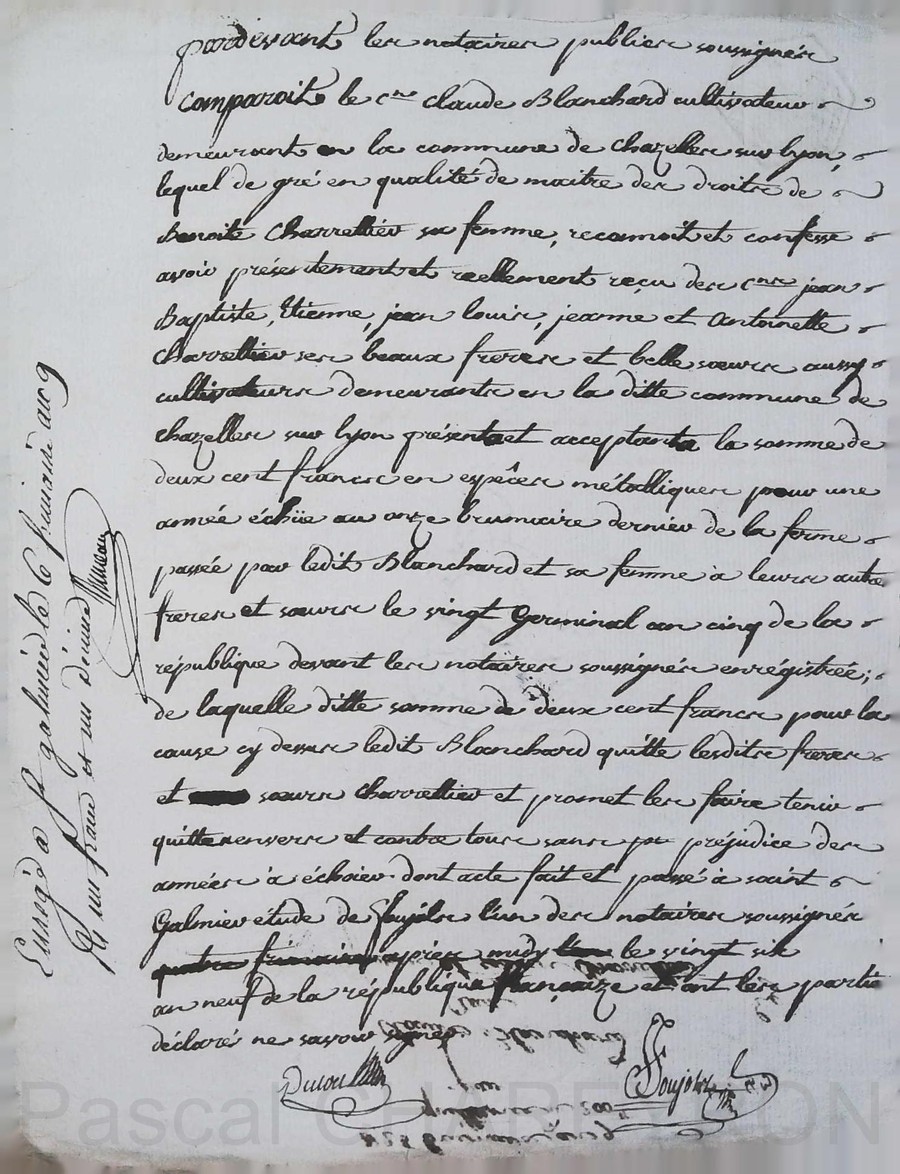 pardevant les notaires publics soussignés
Comparoit le c.en claude Blanchard cultivateur
demeurant en la commune de chazelles sur lyon,
lequel de gré en qualité de maitre des droits de
Benoite Charrettier sa femme, reconnoit et confesse
avoir présentement et réellement reçu des c.ens jean
Baptiste, Etienne, jean louis, jeanne et Antoinette
Charrettier ses beaux freres et belle sœurs aussy
cultivateurs demeurants en la ditte commune de
chazelles sur lyon présents et acceptants la somme de
deux cent francs en espêces métalliques pour une
année échüe au onze brumaire dernier de la ferme
passée par ledit Blanchard et sa femme à leurs autres
freres et sœurs le vingt Germinal an cinq de la
république devant les notaires soussignés enrégistrée;
de laquelle ditte somme de deux cent francs pour la
cause cy dessus ledit Blanchard quitte lesdits freres
et sœurs charrettier et promet les faire tenir
quittes envers et contre tous sans préjudice des
années à échoier. dont acte fait et passé à saint
Galmier étude de Soujols l'un des notaires soussignés
après midy le vingt six
an neuf de la république françaize et ont les partie
déclarés ne savoir signer
Soujols
Enrgé à St galmier le 6 frimaire an 9
Rç un franc et un décime
Pascal CHAREYRON